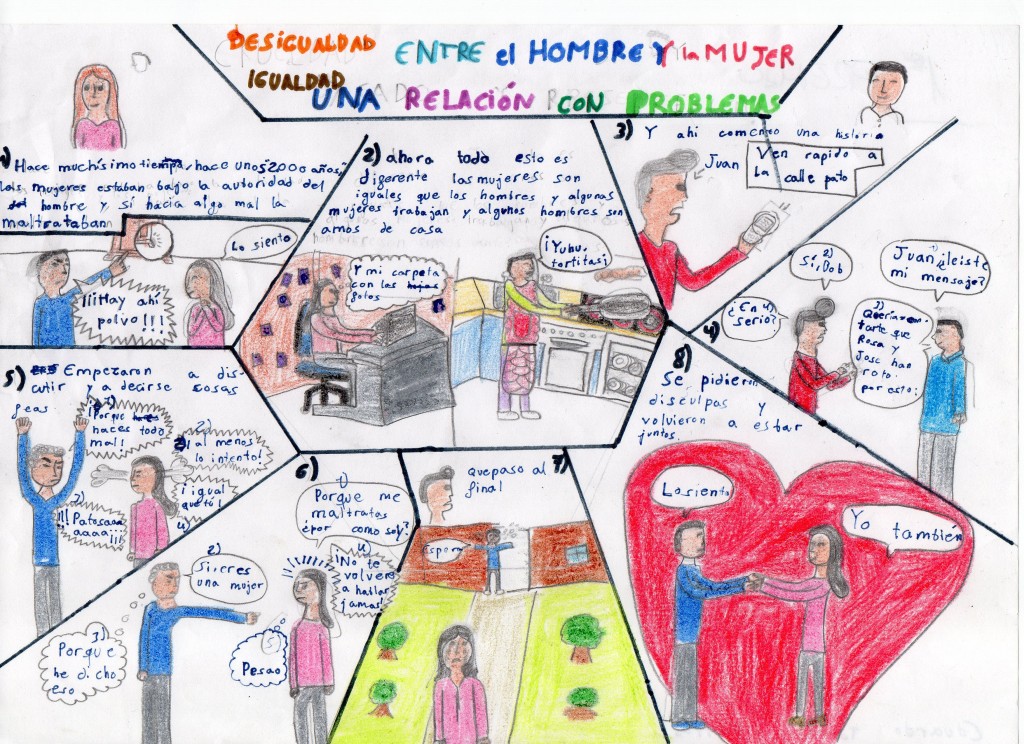 DESIGUALDAD ENTRE el HOMBRE Y la MUJER
IGUALDAD
UNA RELACIÓN CON PROBLEMAS
1) Hace muchísimo tiempo, hace unos 2000 años,
las mujeres estaban bajo la autoridad del
hombre y si hacia algo mal la
maltrataban
Lo siento
¡¡¡Hay ahí
polvo!!!
2) ahora todo esto es
diferente las mujeres son
iguales que los hombres y algunas
mujeres trabajan y algunos hombres son
amos de casa
Y mi carpeta
con las
fotos
¡Yuhu,
tortitas¡
3) Y ahi comenzo una historia
Juan
Ven rapido a
la calle pato
4)
1)
Juan ¿leiste
mi mensaje?
2)
Sí, Bob
3)
Queria con
tarte que
Rosa y
Jose han
roto
por esto:
4)
¿En
serio?
5) Empezaron a dis-
cutir y a decirse cosas
feas
1)
¡Porque
haces todo
mal!
2)
¡al menos
lo intento!
3)
!!!Patosaaa
aaaaa¡!!!
¡igual
que tú!
4)
6)
1)
Porque me
maltratas
¿por como soy?
2)
Si eres
una mujer
3)
Porque
he dicho
eso
4)
¡No te
volveré
a hablar
jamas!
5)
Pesao
7)
que paso al
final
Espera
8)
Se pidieron
disculpas y
volvieron a estar
juntos.
Lo siento
Yo
también